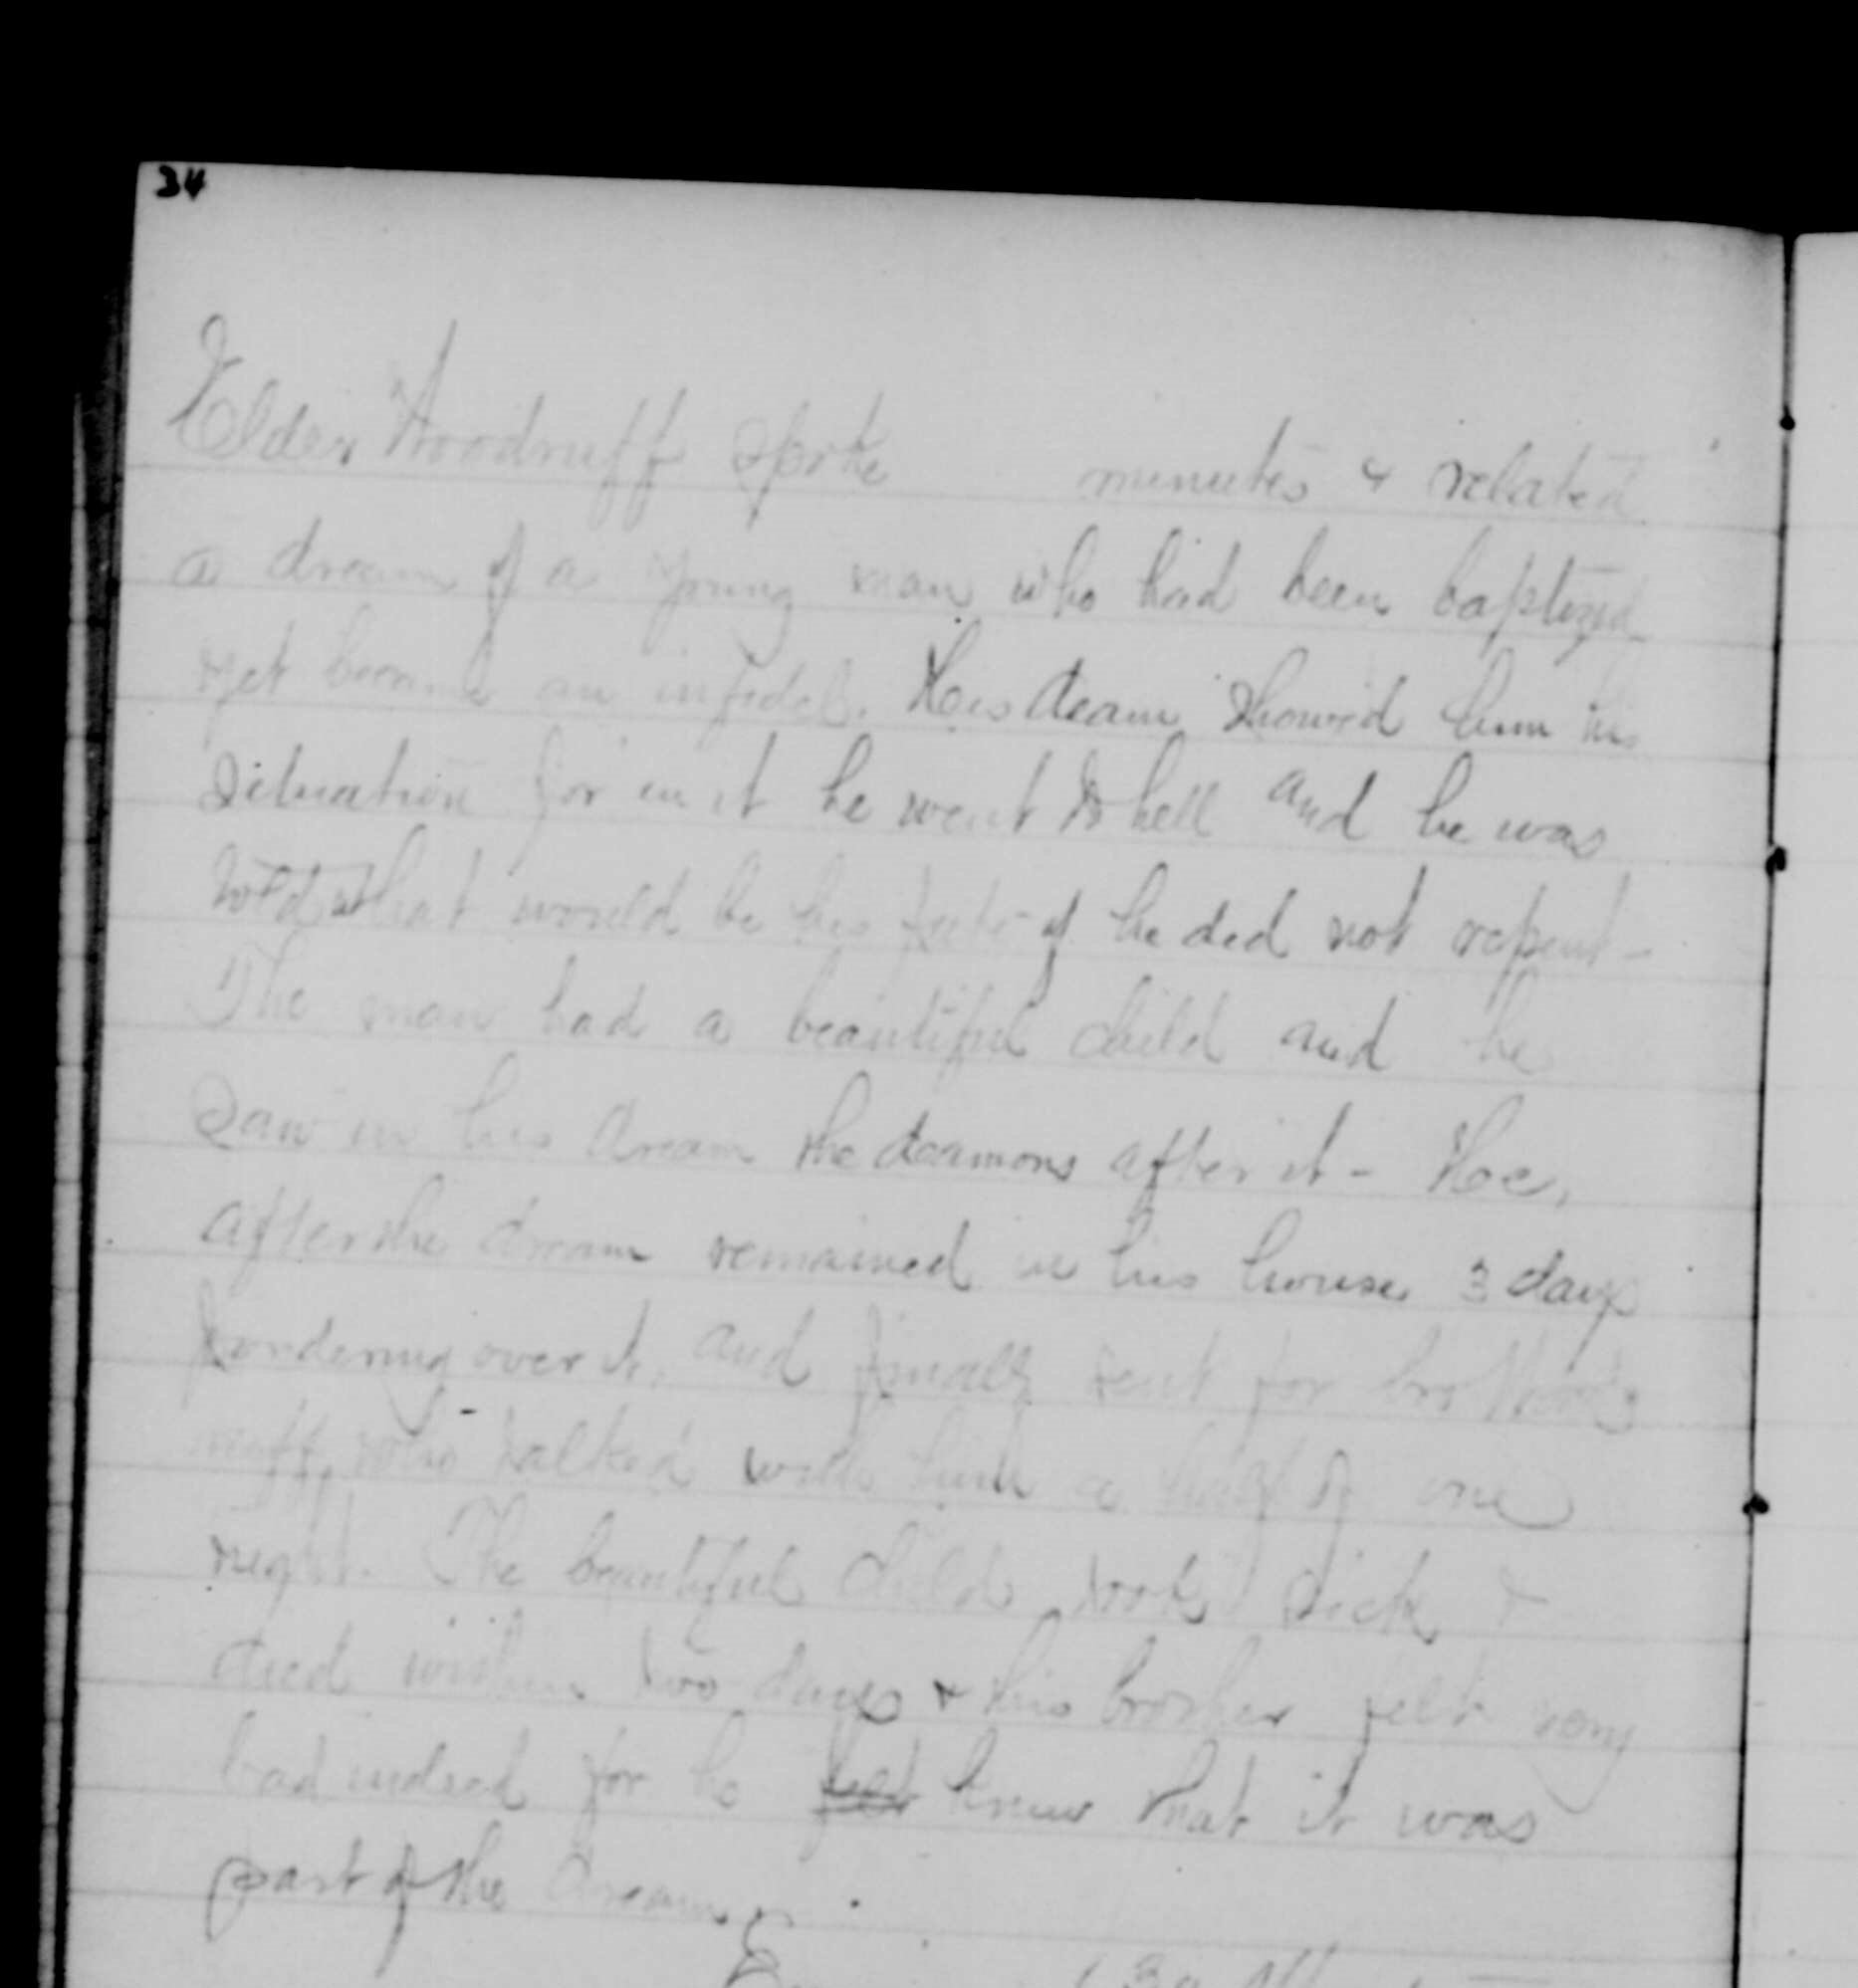 34
Elder Woodruff spoke minutes & related
a dream of a young man who had been baptized
yet became an infidel. His deam showed him his
situation for in it he went to hell and he was
told what would be his fate if he did not repent-
The man had a beautiful child and he
saw in his dream the deamons after it - He,
after the dream remained in his house 3 days
pondering over it, and finally sent for bro Wood-
ruff, who talked with him a half of one
night. The beautiful child took sick &
died within two days & his brother felt very
bad indeed for he felt knew that it was
part of the dream.